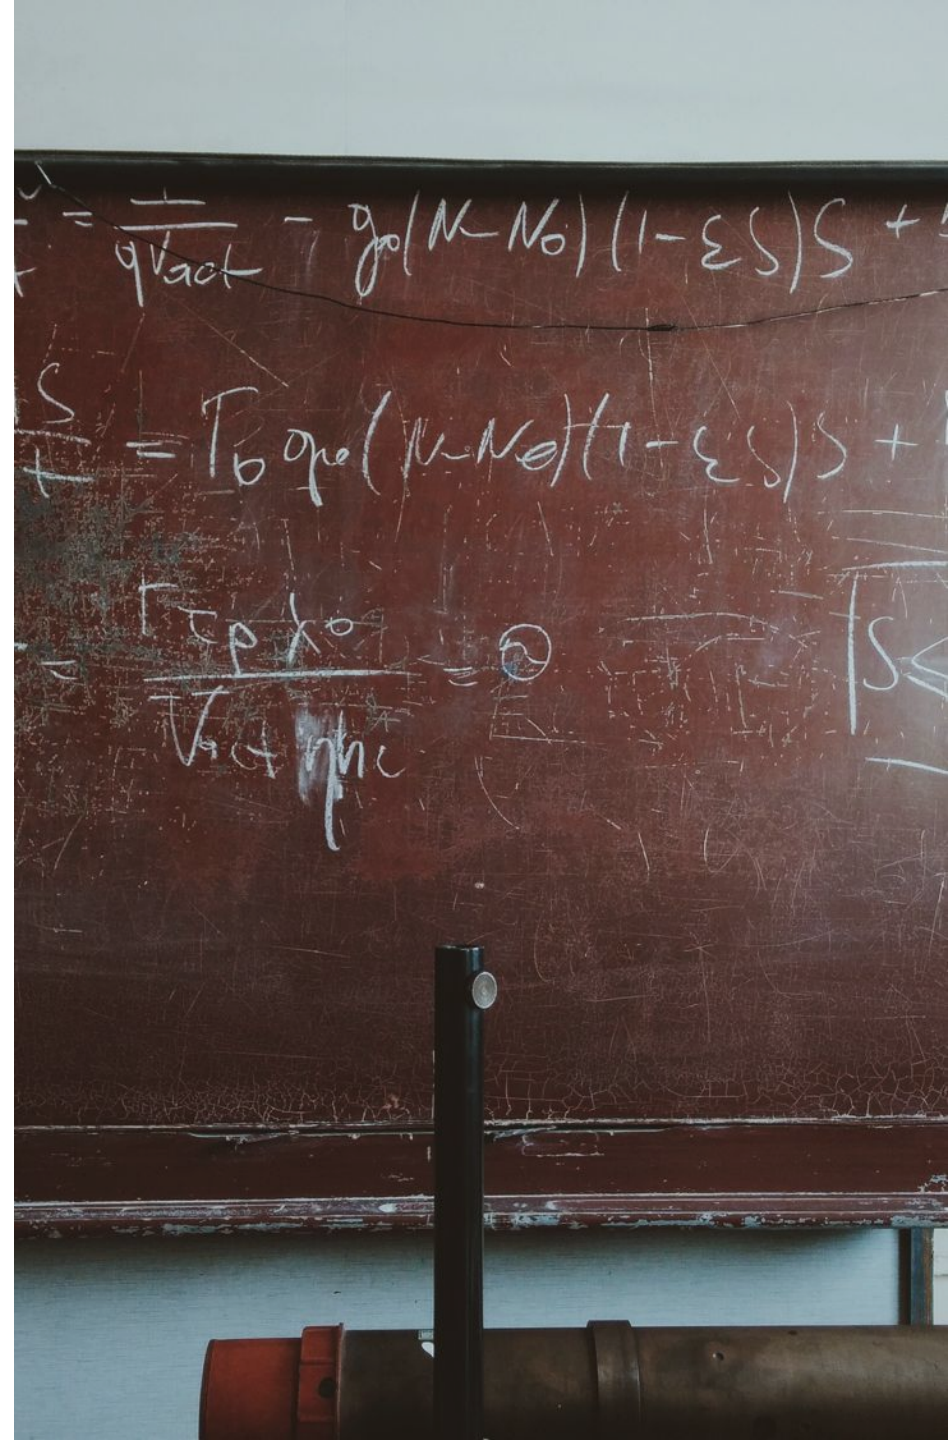 = I / qVact - g₀(N-N₀)(1-εS)S +
S / t = Γ₀g₀(N-N₀)(1-εS)S +
= Γτpλ₀ / Vactηhc = ②
S ≤